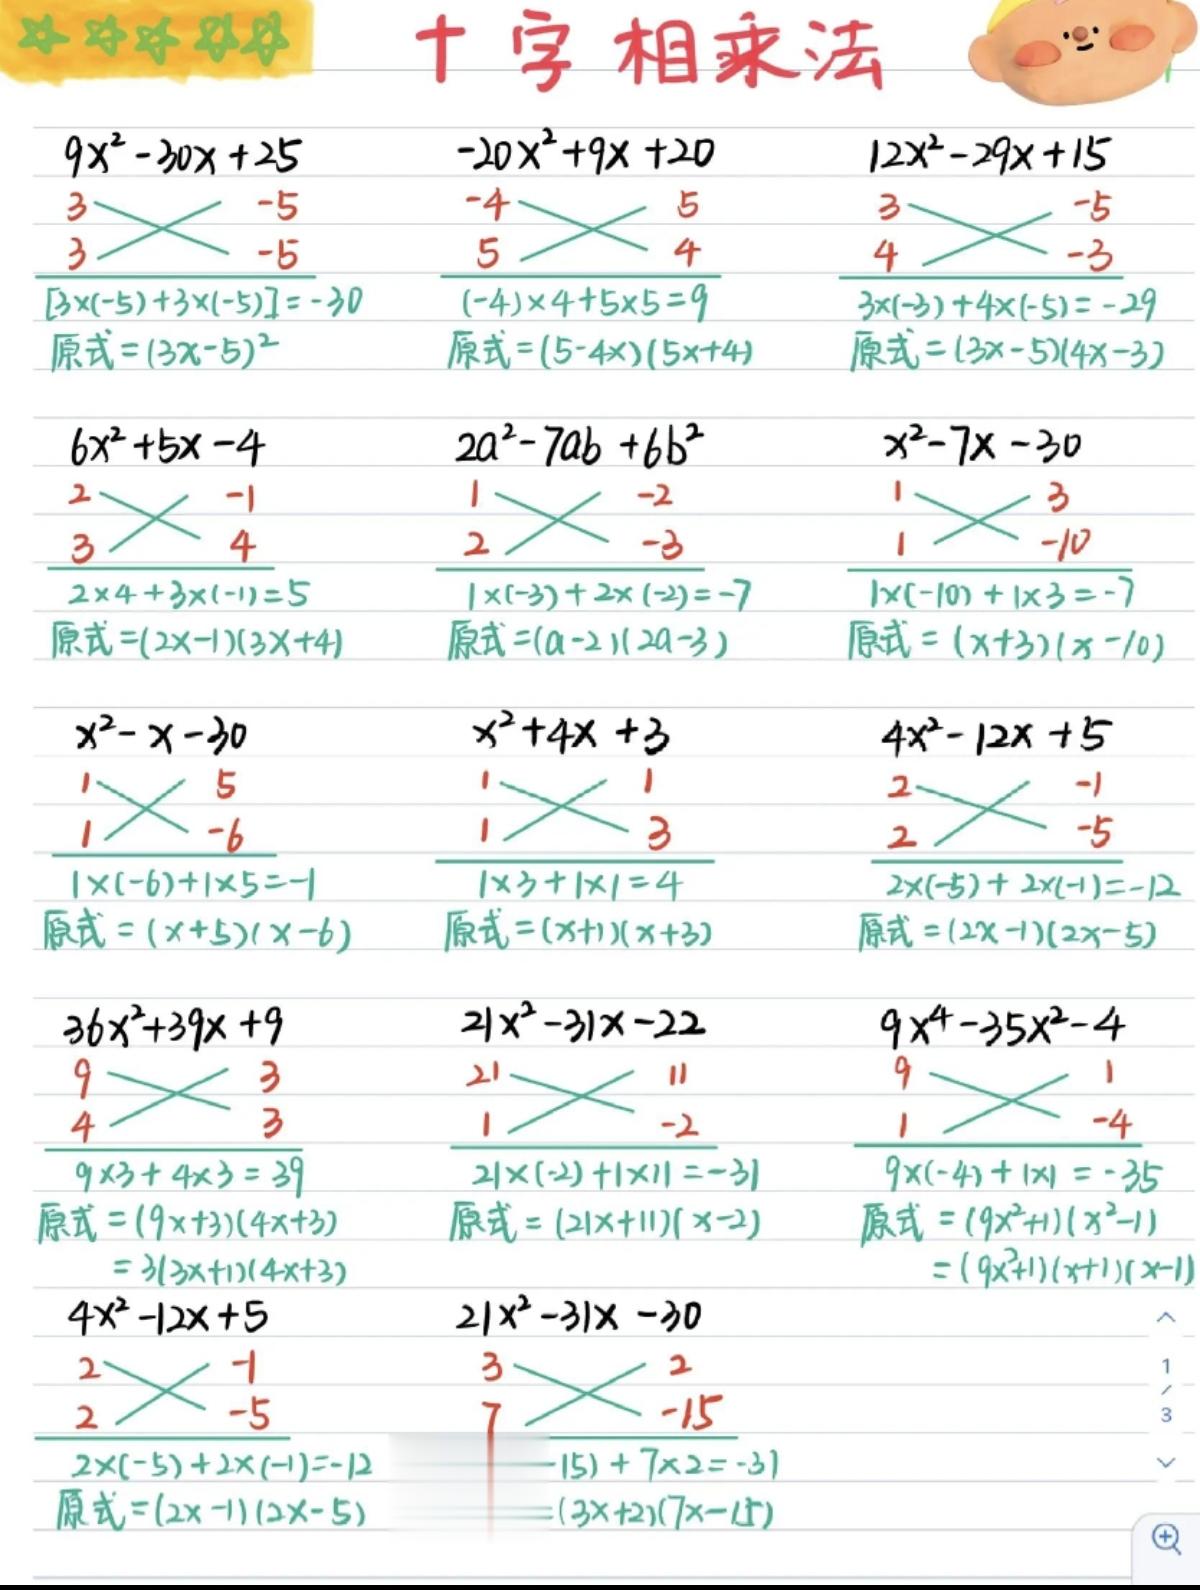 十字相乘法
9x²-30x+25
3 -5
3 -5
[3×(-5)+3×(-5)]=-30
原式=(3x-5)²
-20x²+9x+20
-4 5
5 4
(-4)×4+5×5=9
原式=(5-4x)(5x+4)
12x²-29x+15
3 -5
4 -3
3×(-3)+4×(-5)=-29
原式=(3x-5)(4x-3)
6x²+5x-4
2 -1
3 4
2×4+3×(-1)=5
原式=(2x-1)(3x+4)
2a²-7ab+6b²
1 -2
2 -3
1×(-3)+2×(-2)=-7
原式=(a-2)(2a-3)
x²-7x-30
1 3
1 -10
1×(-10)+1×3=-7
原式=(x+3)(x-10)
x²-x-30
1 5
1 -6
1×(-6)+1×5=-1
原式=(x+5)(x-6)
x²+4x+3
1 1
1 3
1×3+1×1=4
原式=(x+1)(x+3)
4x²-12x+5
2 -1
2 -5
2×(-5)+2×(-1)=-12
原式=(2x-1)(2x-5)
36x²+39x+9
9 3
4 3
9×3+4×3=39
原式=(9x+3)(4x+3)
=3(3x+1)(4x+3)
21x²-31x-22
21 11
1 -2
21×(-2)+1×11=-31
原式=(21x+11)(x-2)
9x⁴-35x²-4
9 1
1 -4
9×(-4)+1×1=-35
原式=(9x²+1)(x²-1)
=(9x²+1)(x+1)(x-1)
4x²-12x+5
2 -1
2 -5
2×(-5)+2×(-1)=-12
原式=(2x-1)(2x-5)
21x²-31x-30
3 2
7 -15
-15)+7×2=-31
=(3x+2)(7x-15)
1
/
3